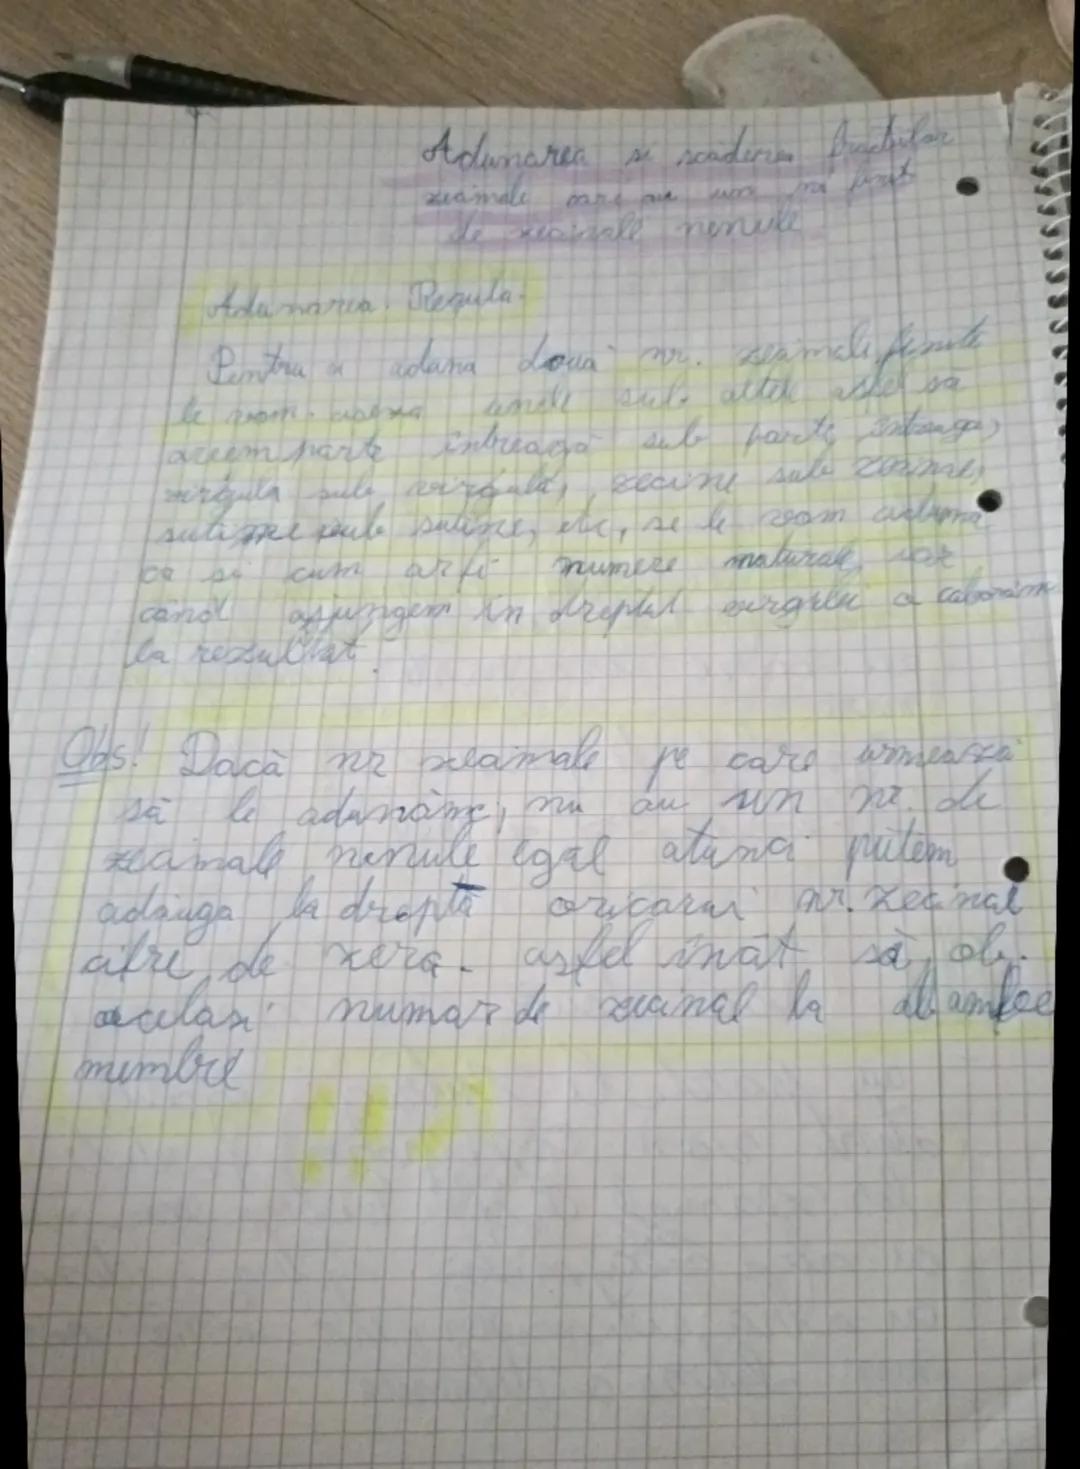 Adunarea si scaderea fractiilor
zecimale care au un nr finit
de zecimale nenule
Adunarea. Regula.
Pentru a aduna două nr. zecimale finite
le vom aseza unele sub altele astfel să
avem parte întreagă sub parte întreaga,
virgula sub virgulă, zecime sub zecime,
sutime sub sutime, etc, se le vom aduna
ca si cum arfi numere naturale, iar
când ajungem în dreptul virgulei o coborâm
la rezultat.
Obs! Dacă nr zecimale pe care urmează
să le adunăm, nu au un nr. de
zecimale nenule egal atunci putem
adăuga la dreptă oricarui nr. zecinal
cifre de zero. astfel incât să ob.
acelasi numar de zecinal la ambee
membre
!!